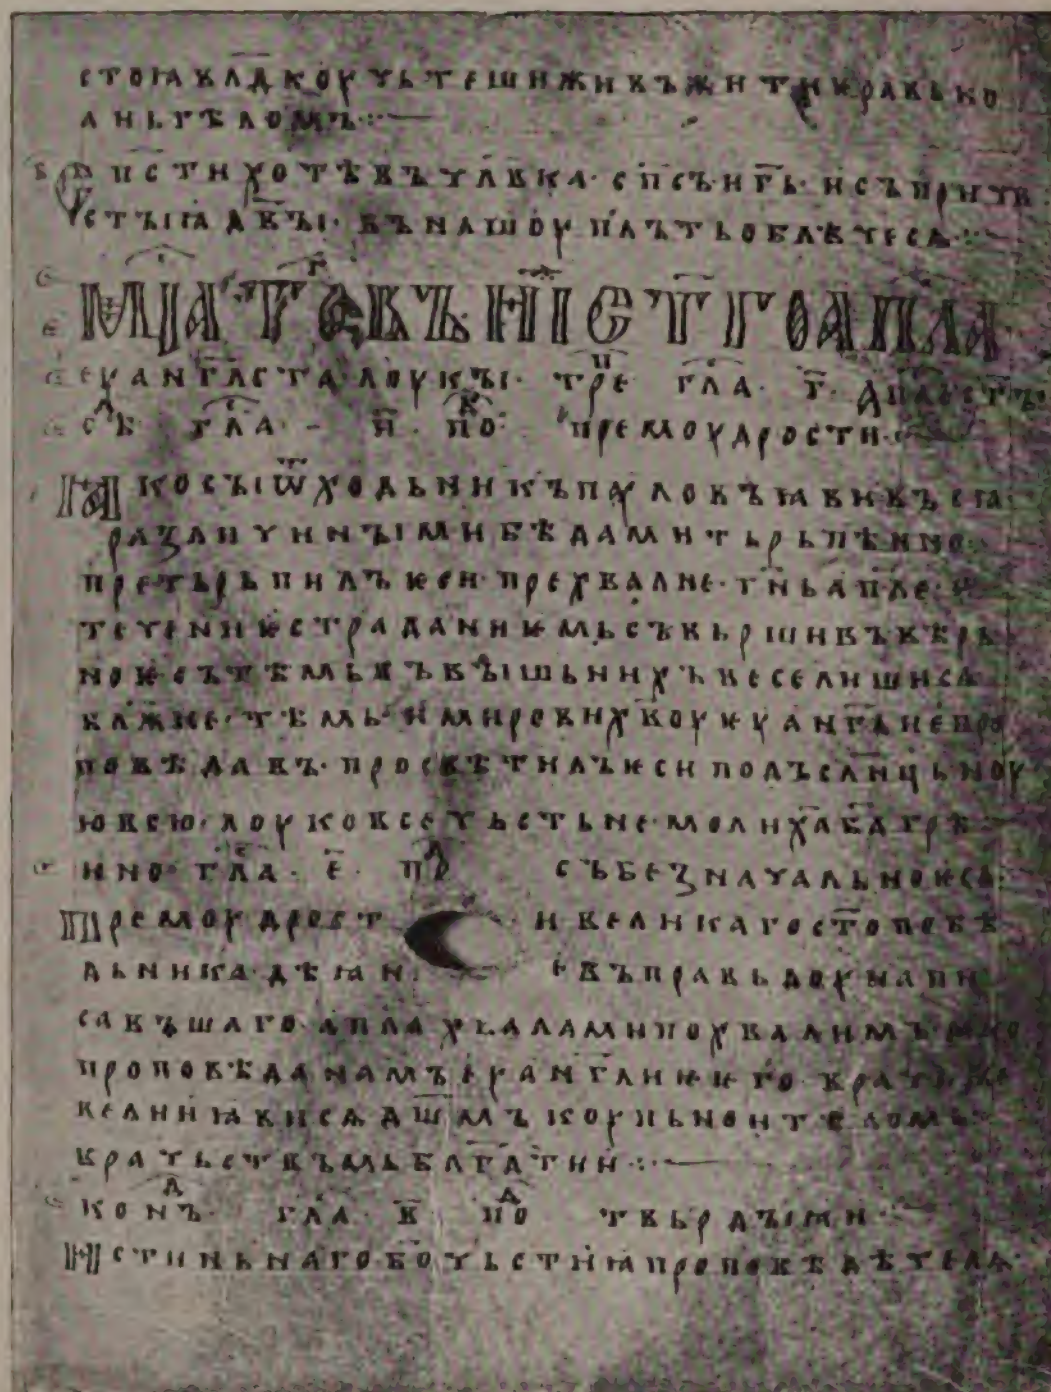 стоꙗ влⷣкоу чьтеши жи въ жити и равьно
аньгѣломъ
ѹпстихотѣ въ члвка спсъ нгъ и съ причв
стыꙗ двы въ нашоу плъть облѣчесѧ
мцⷭа тогⷤ въ ні ст҃го апла
еуанглста лоукы трⷫе гла г
сѣⷣ гла и поⷣ премоудрости
ꙗко сы ѿходьникъ пауловъ ꙗвивъсѧ
различиными бѣдами тьрьпѣнно
претьрьпилъ ѥси прехвалне гн҃ь апле и
течениѥ страданиѥмь съвьрши въ вѣрь
ноѥ съ тѣмь въ вышьнихъ веселишисѧ
блжне тѣмь и мирових҃воу ѥуангл҃иѥ про
повѣдавъ просвѣтилъ ѥси подъ слн҃цьноу
ю всю лоуко всечьстьне моли х҃а б҃а грѣ
нно гла е поⷣ събезначальноѥсѧ
Премоудрост и великаго ст҃опобѣ
дьника дѣꙗн е въ правьдоу напи
савъшаго апла хвалами похвалимъ ꙗко
проповѣда намъ еуанглиѥ ѥго
велиꙗ виса дш҃мъ коупьно и тѣломъ
врачьствъмь блгдатии
конⷣъ гла в поⷣ твьрдыꙗи
Истиньнаго бочьстиꙗ проповѣдѣтелѧ